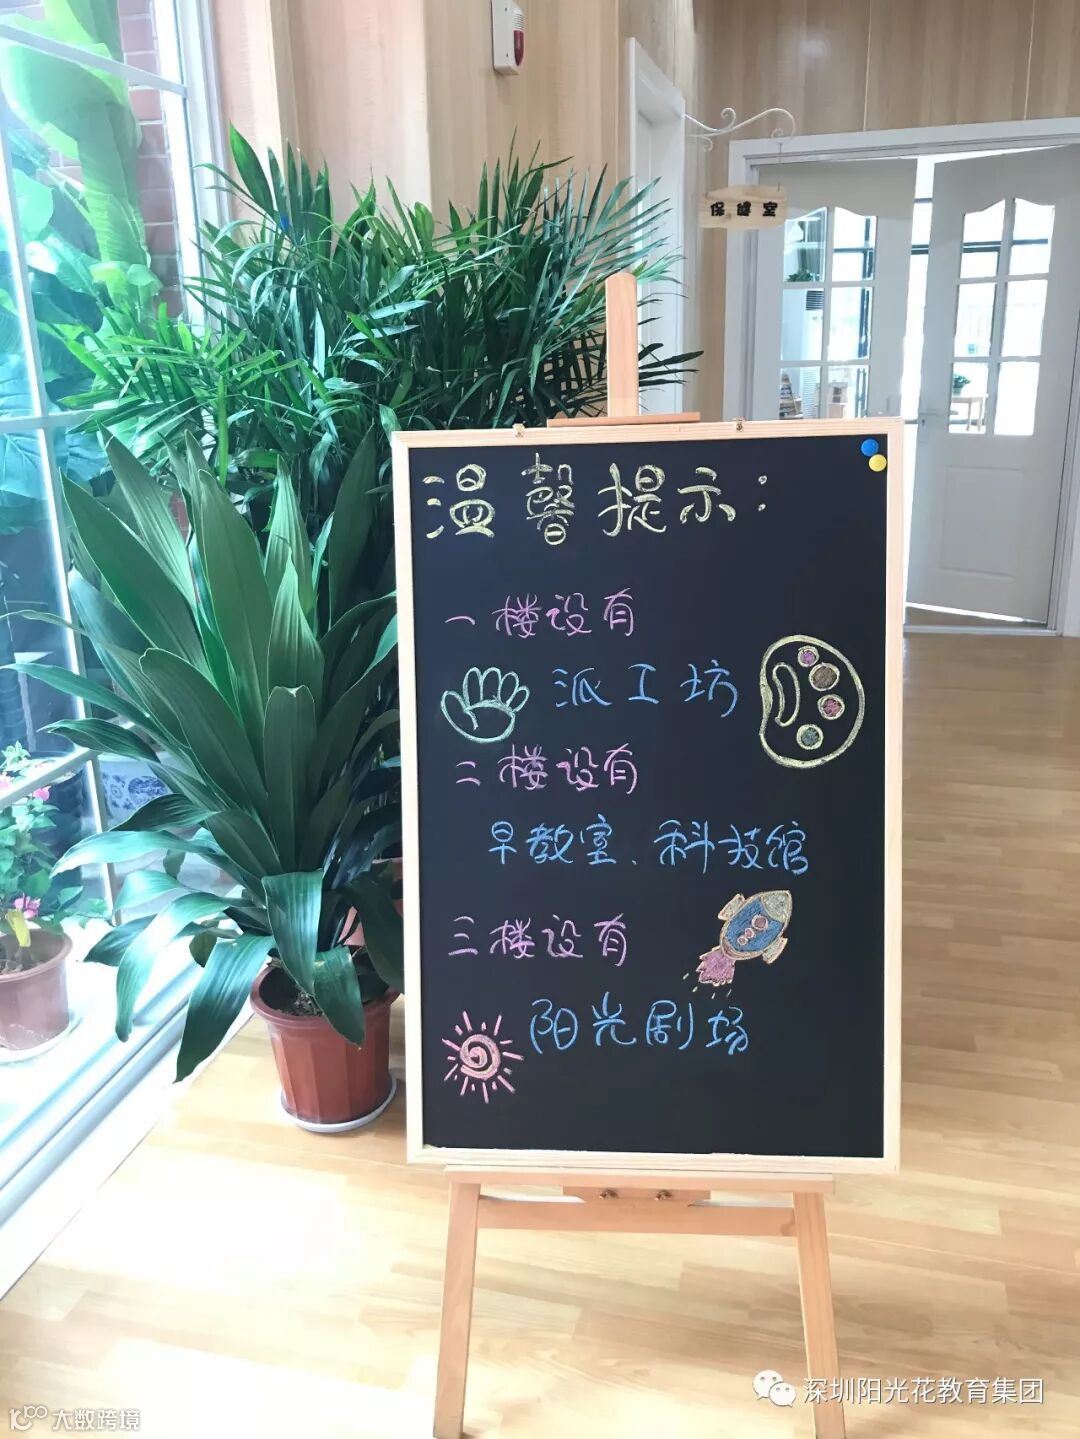 保健室
温馨提示：
一楼设有
派工坊
二楼设有
早教室、科技馆
三楼设有
阳光剧场
深圳阳光花教育集团
大数跨境